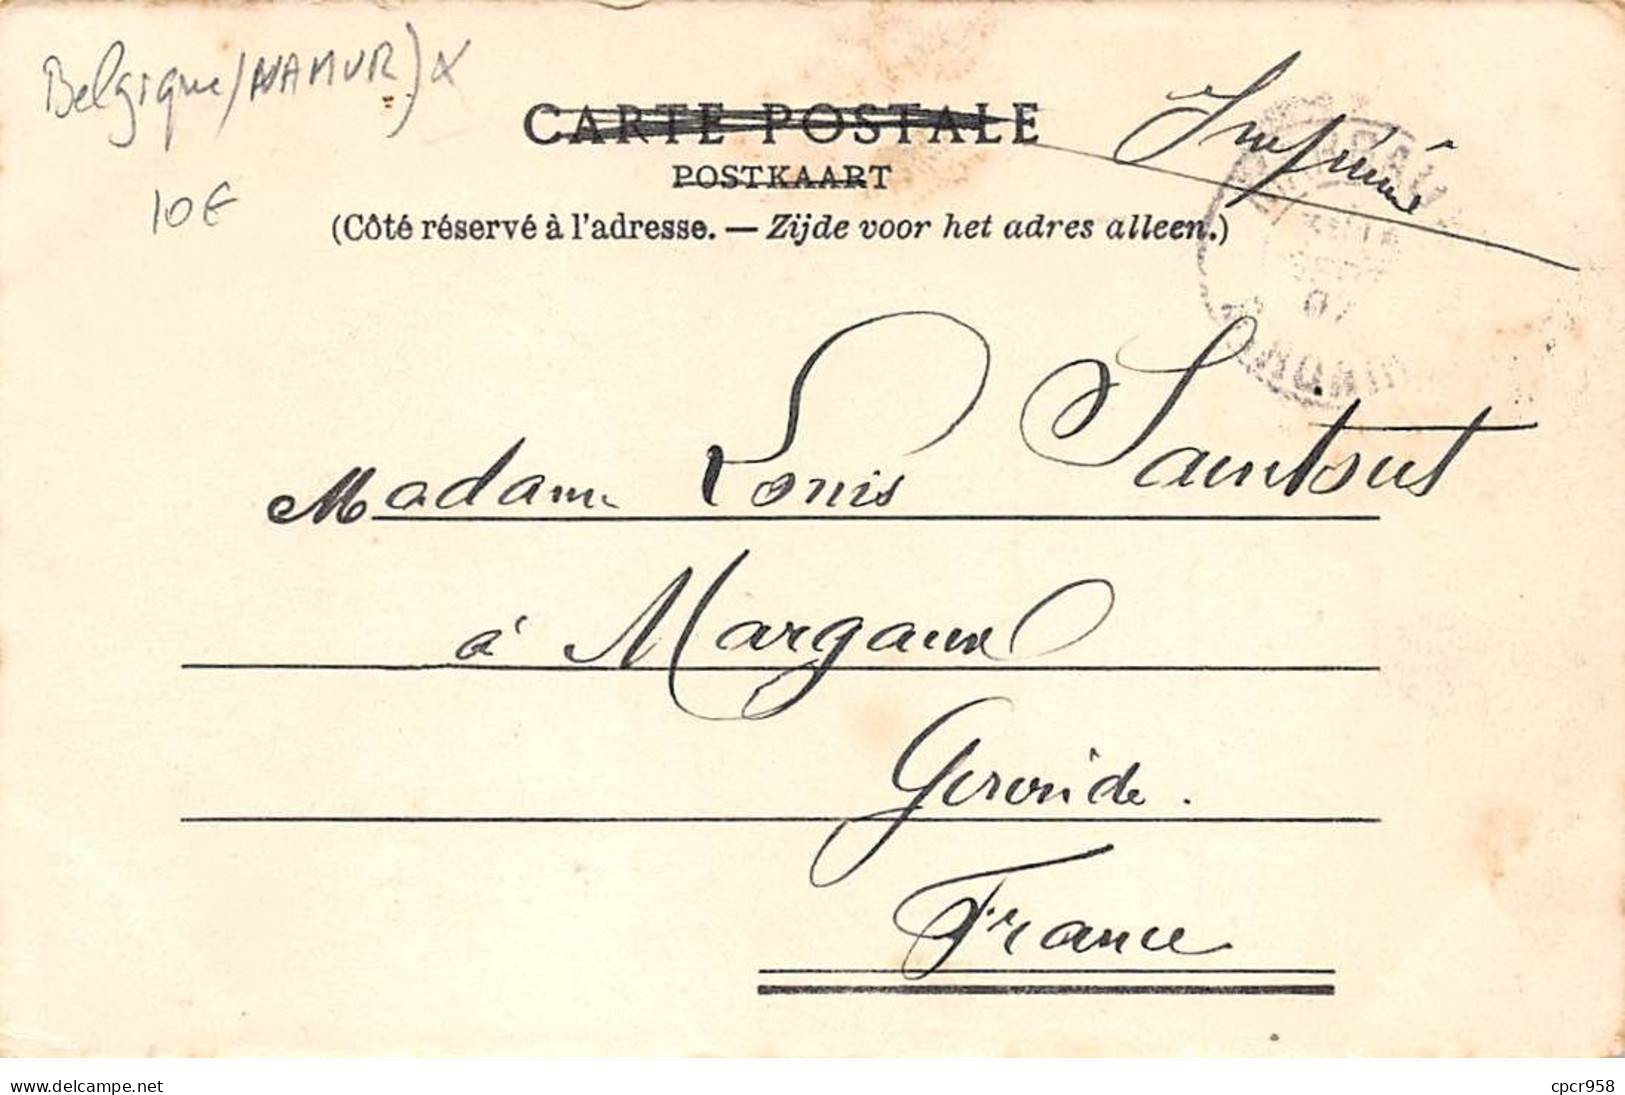 Belgique (NAMUR) x
10€
CARTE POSTALE
Imprimé
POSTKAART
(Côté réservé à l'adresse. — Zijde voor het adres alleen.)
07
Madame Louis Saintout
à Margaux
Gironde.
France
www.delcampe.net
cpcr958